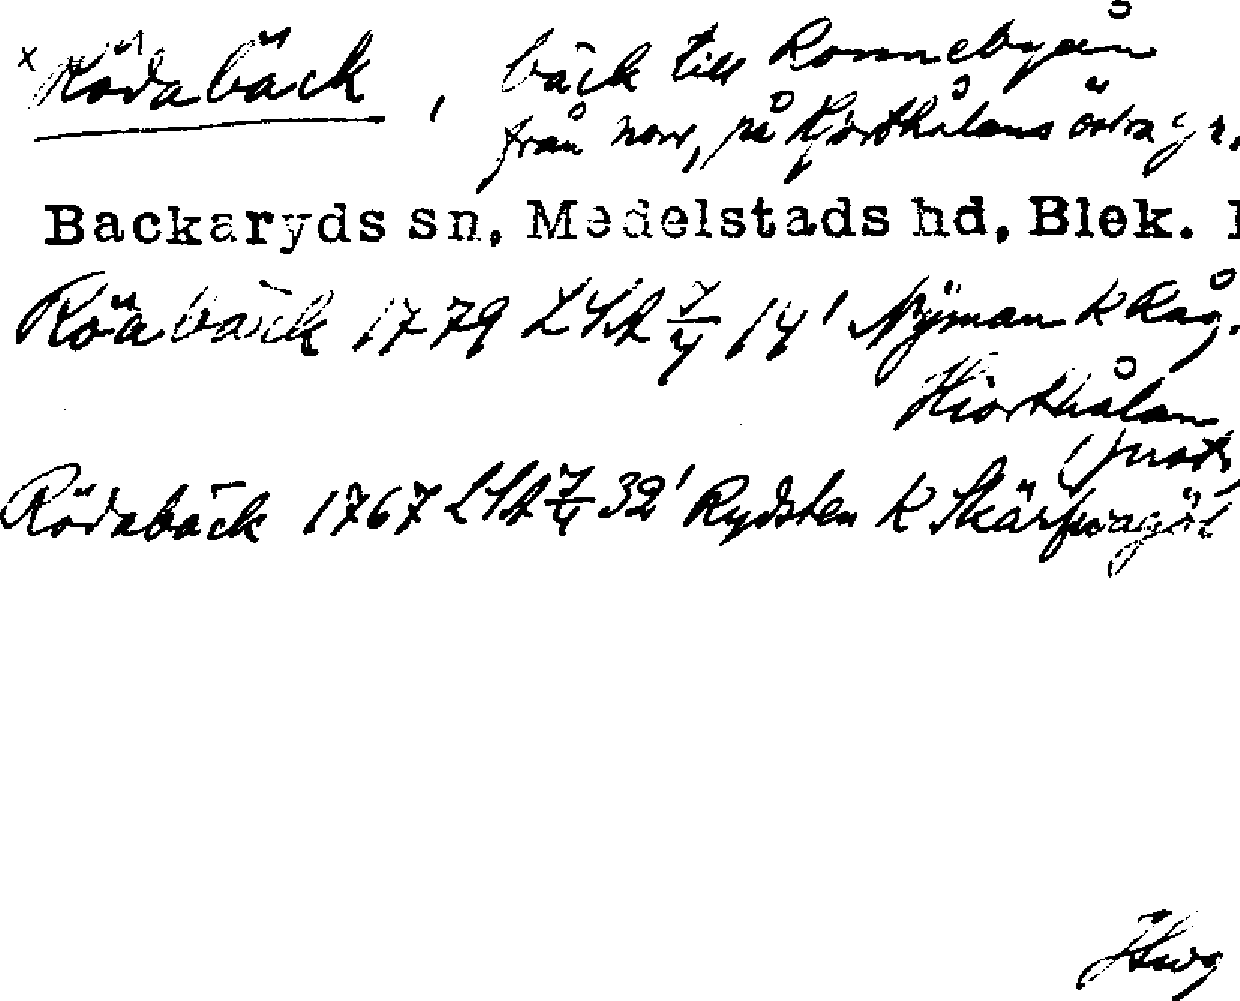 x Rödabäck, bäck till Ronnebyån
från norr, på Hjorthålans östra gr.
Backaryds sn, Medelstads hd, Blek.
Röäbäck 1779 LSA 7/4 14' Nyman k Råg.
Hiorthålan
(prot.
Rödabäck 1767 LSA 7/4 32' Rydsten k Skärfwagöl